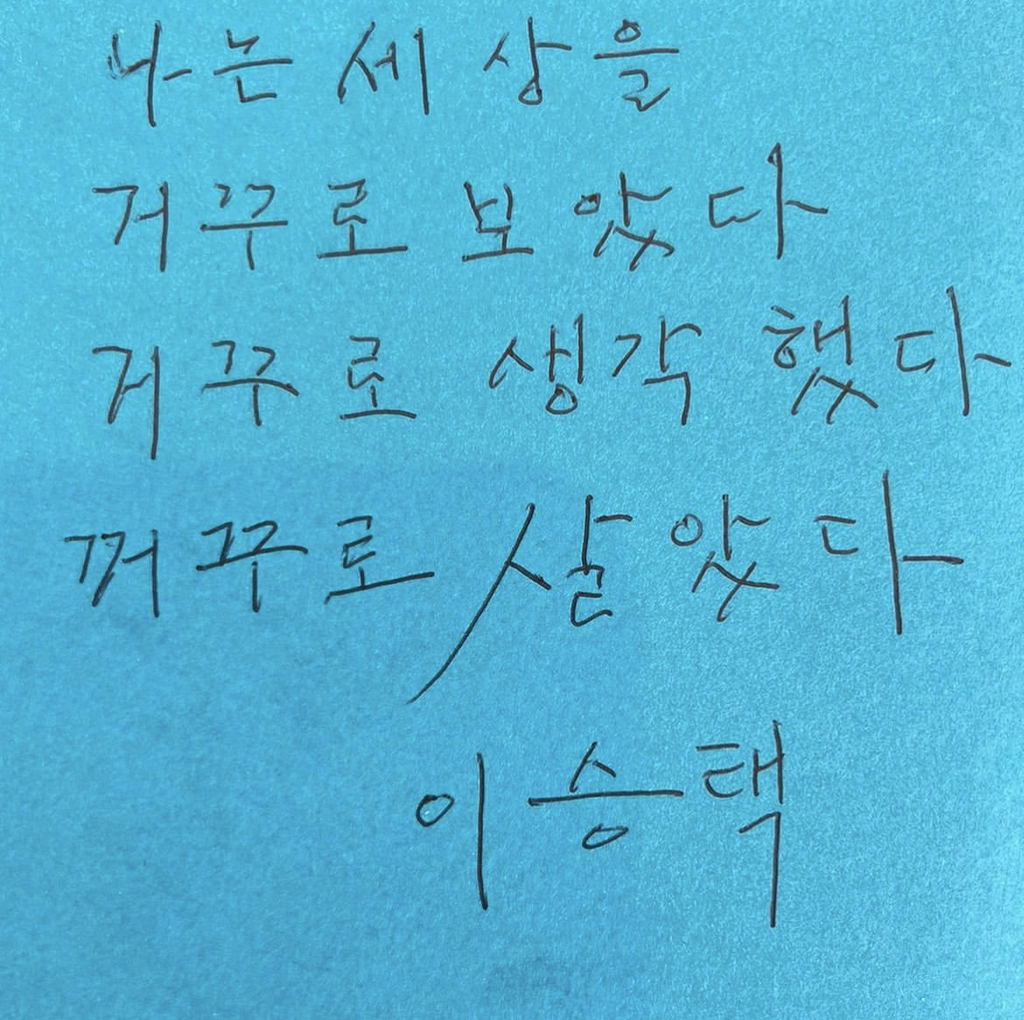 나는 세상을
거꾸로 보았다
거꾸로 생각했다
꺼꾸로 살았다
이승택